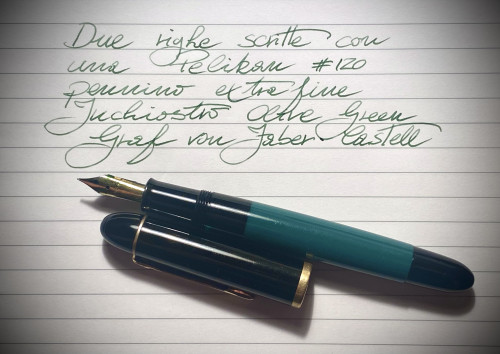 Due righe scritte con
una Pelikan #120
pennino extra fine
Inchiostro Olive Green
Graf von Faber-Castell